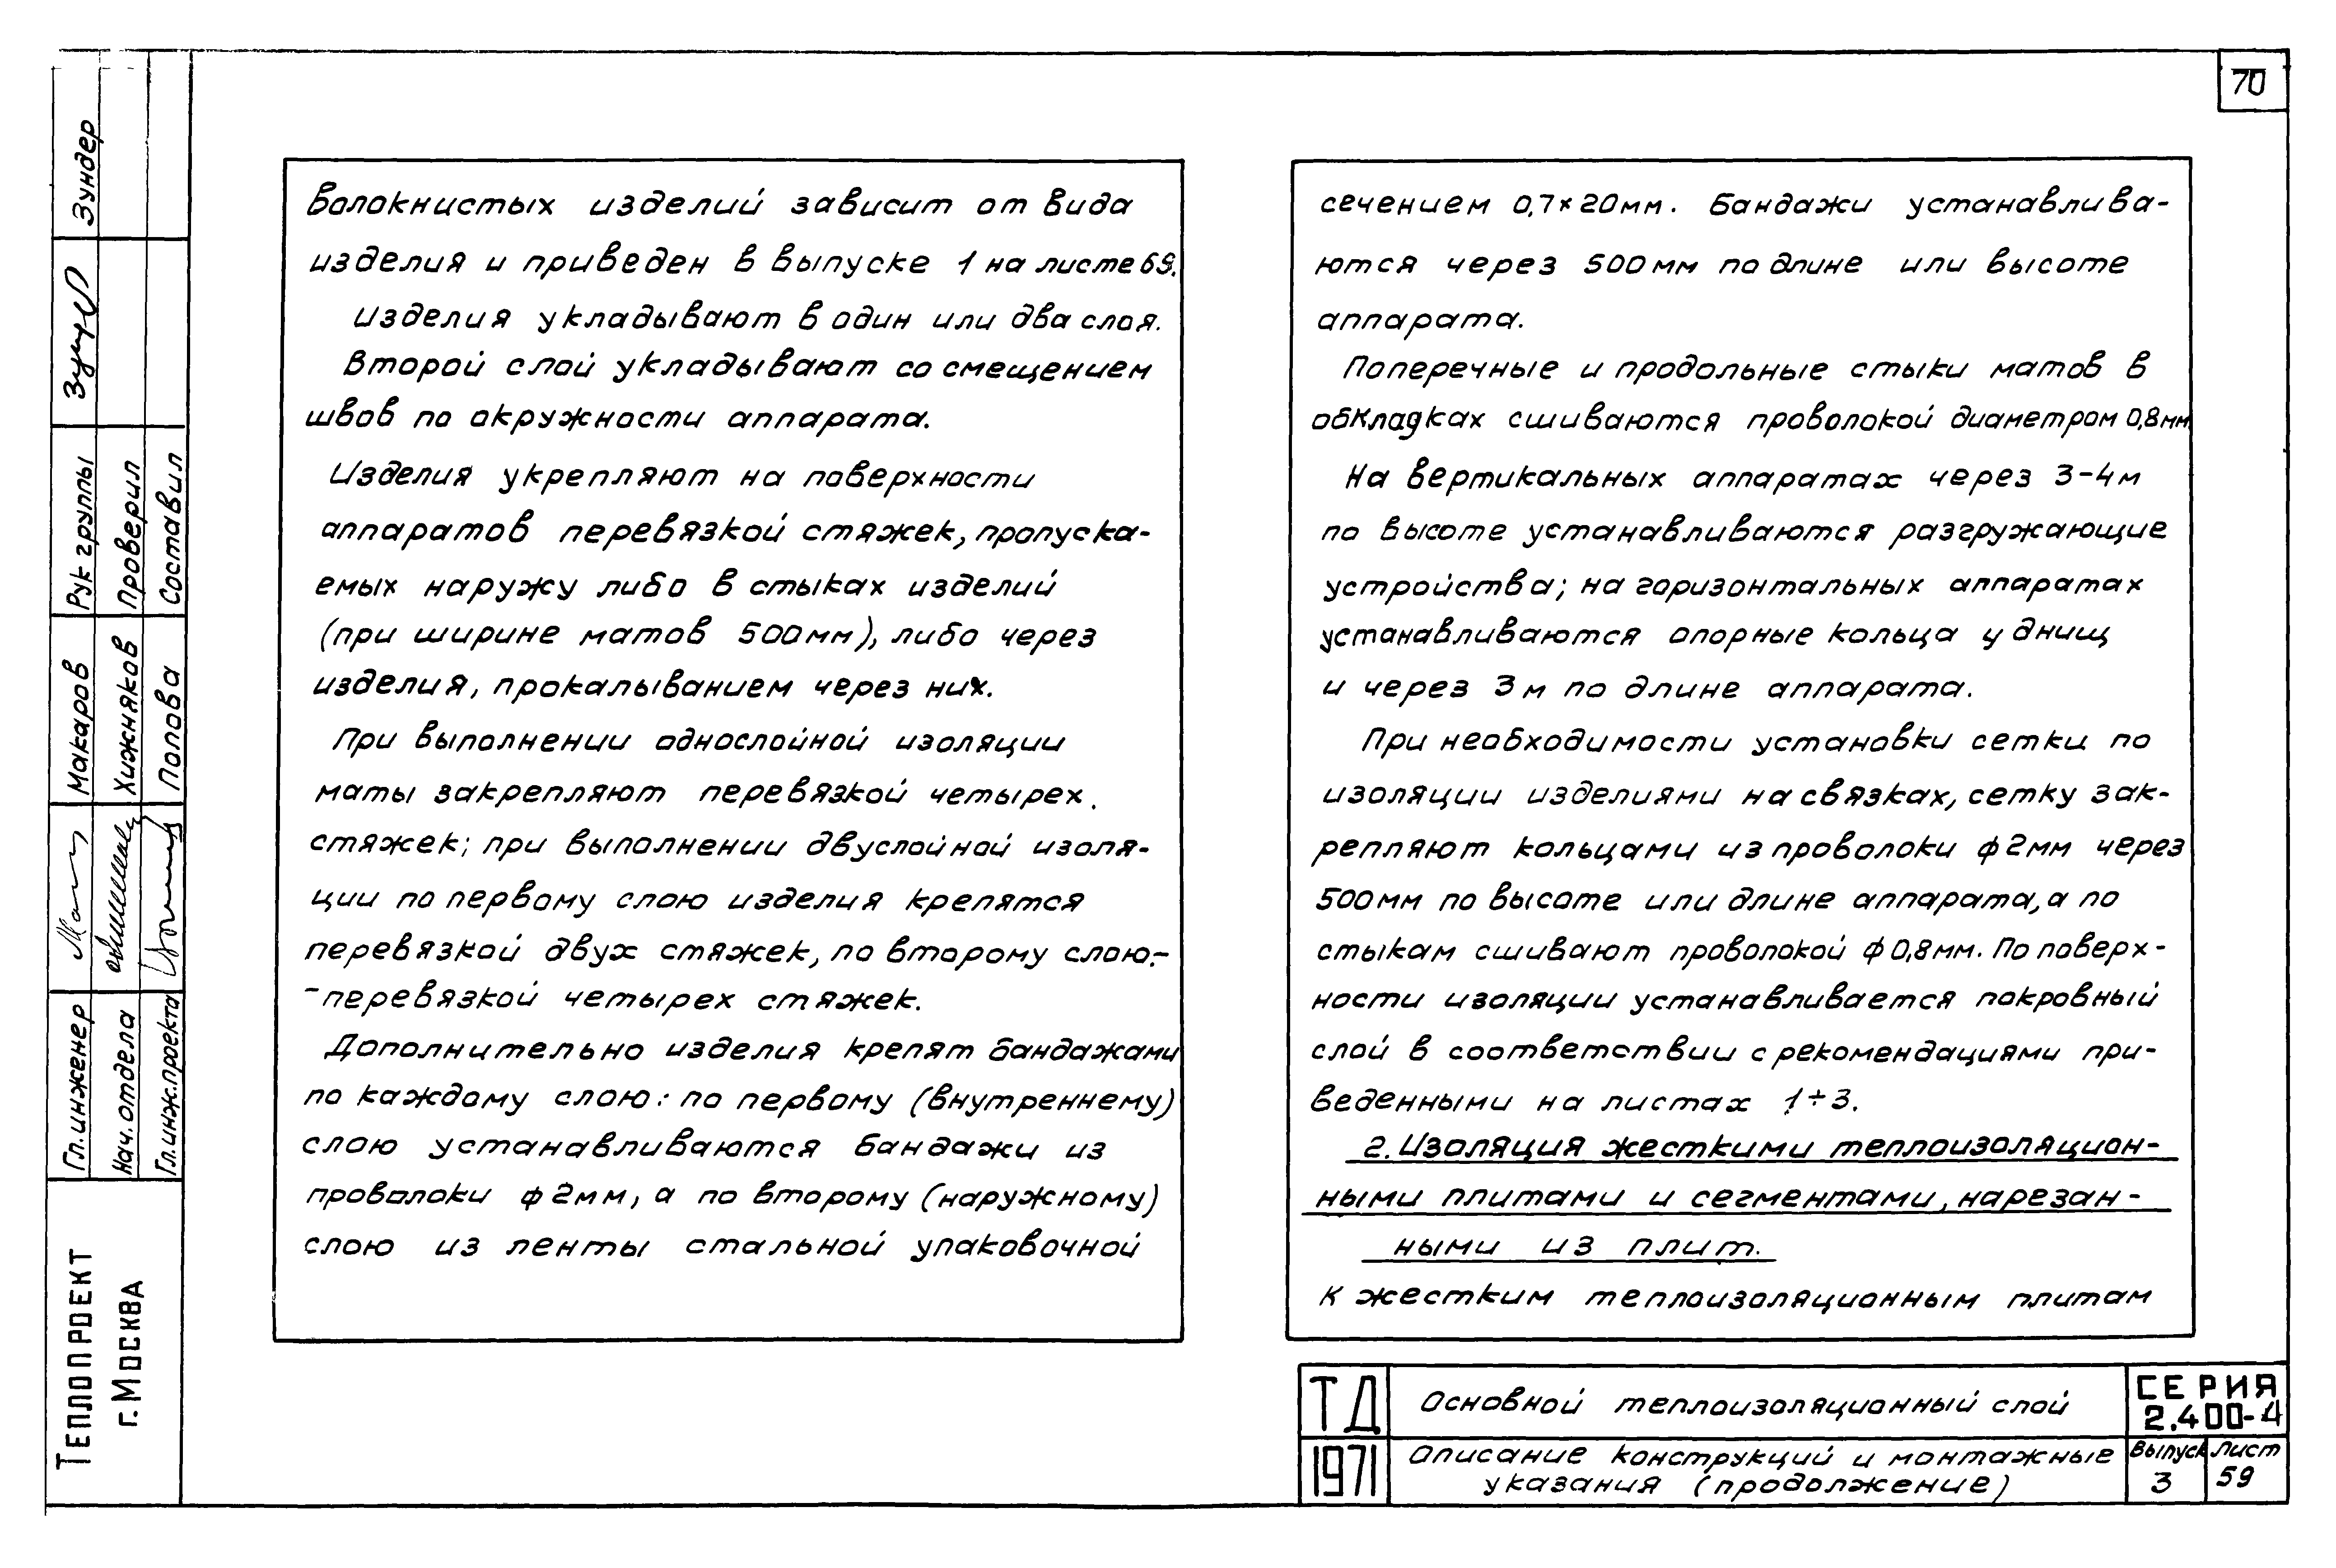 70
волокнистых изделий зависит от вида
изделия и приведен в выпуске 1 на листе 69.
изделия укладывают в один или два слоя.
Второй слой укладывают со смещением
швов по окружности аппарата.
Изделия укрепляют на поверхности
аппаратов перевязкой стяжек, пропуска-
емых наружу либо в стыках изделий
(при ширине матов 500мм), либо через
изделия, прокалыванием через них.
При выполнении однослойной изоляции
маты закрепляют перевязкой четырех
стяжек; при выполнении двуслойной изоля-
ции по первому слою изделия крепятся
перевязкой двух стяжек, по второму слою-
-перевязкой четырех стяжек.
Дополнительно изделия крепят бандажами
по каждому слою: по первому (внутреннему)
слою устанавливаются бандажи из
проволоки ф 2мм, а по второму (наружному)
слою из ленты стальной упаковочной
сечением 0,7×20мм. Бандажи устанавлива-
ются через 500мм по длине или высоте
аппарата.
Поперечные и продольные стыки матов в
обкладках сшиваются проволокой диаметром 0,8мм.
На вертикальных аппаратах через 3-4м
по высоте устанавливаются разгружающие
устройства; на горизонтальных аппаратах
устанавливаются опорные кольца у днищ
и через 3м по длине аппарата.
При необходимости установки сетки по
изоляции изделиями на связках, сетку зак-
репляют кольцами из проволоки ф2мм через
500мм по высоте или длине аппарата, а по
стыкам сшивают проволокой ф0,8мм. По поверх-
ности изоляции устанавливается покровный
слой в соответствии с рекомендациями при-
веденными на листах 1÷3.
2. Изоляция жесткими теплоизоляцион-
ными плитами и сегментами, нарезан-
ными из плит.
К жестким теплоизоляционным плитам
Гл.инженер Макаров Рук группы Зундер
Нач.отдела Хижняков Проверил
Гл.инж.проекта Попова Составил
ТЕПЛОПРОЕКТ
г.МОСКВА
ТД
1971
Основной теплоизоляционный слой
Описание конструкций и монтажные
указания (продолжение)
СЕРИЯ
2.400-4
Выпуск Лист
3 59